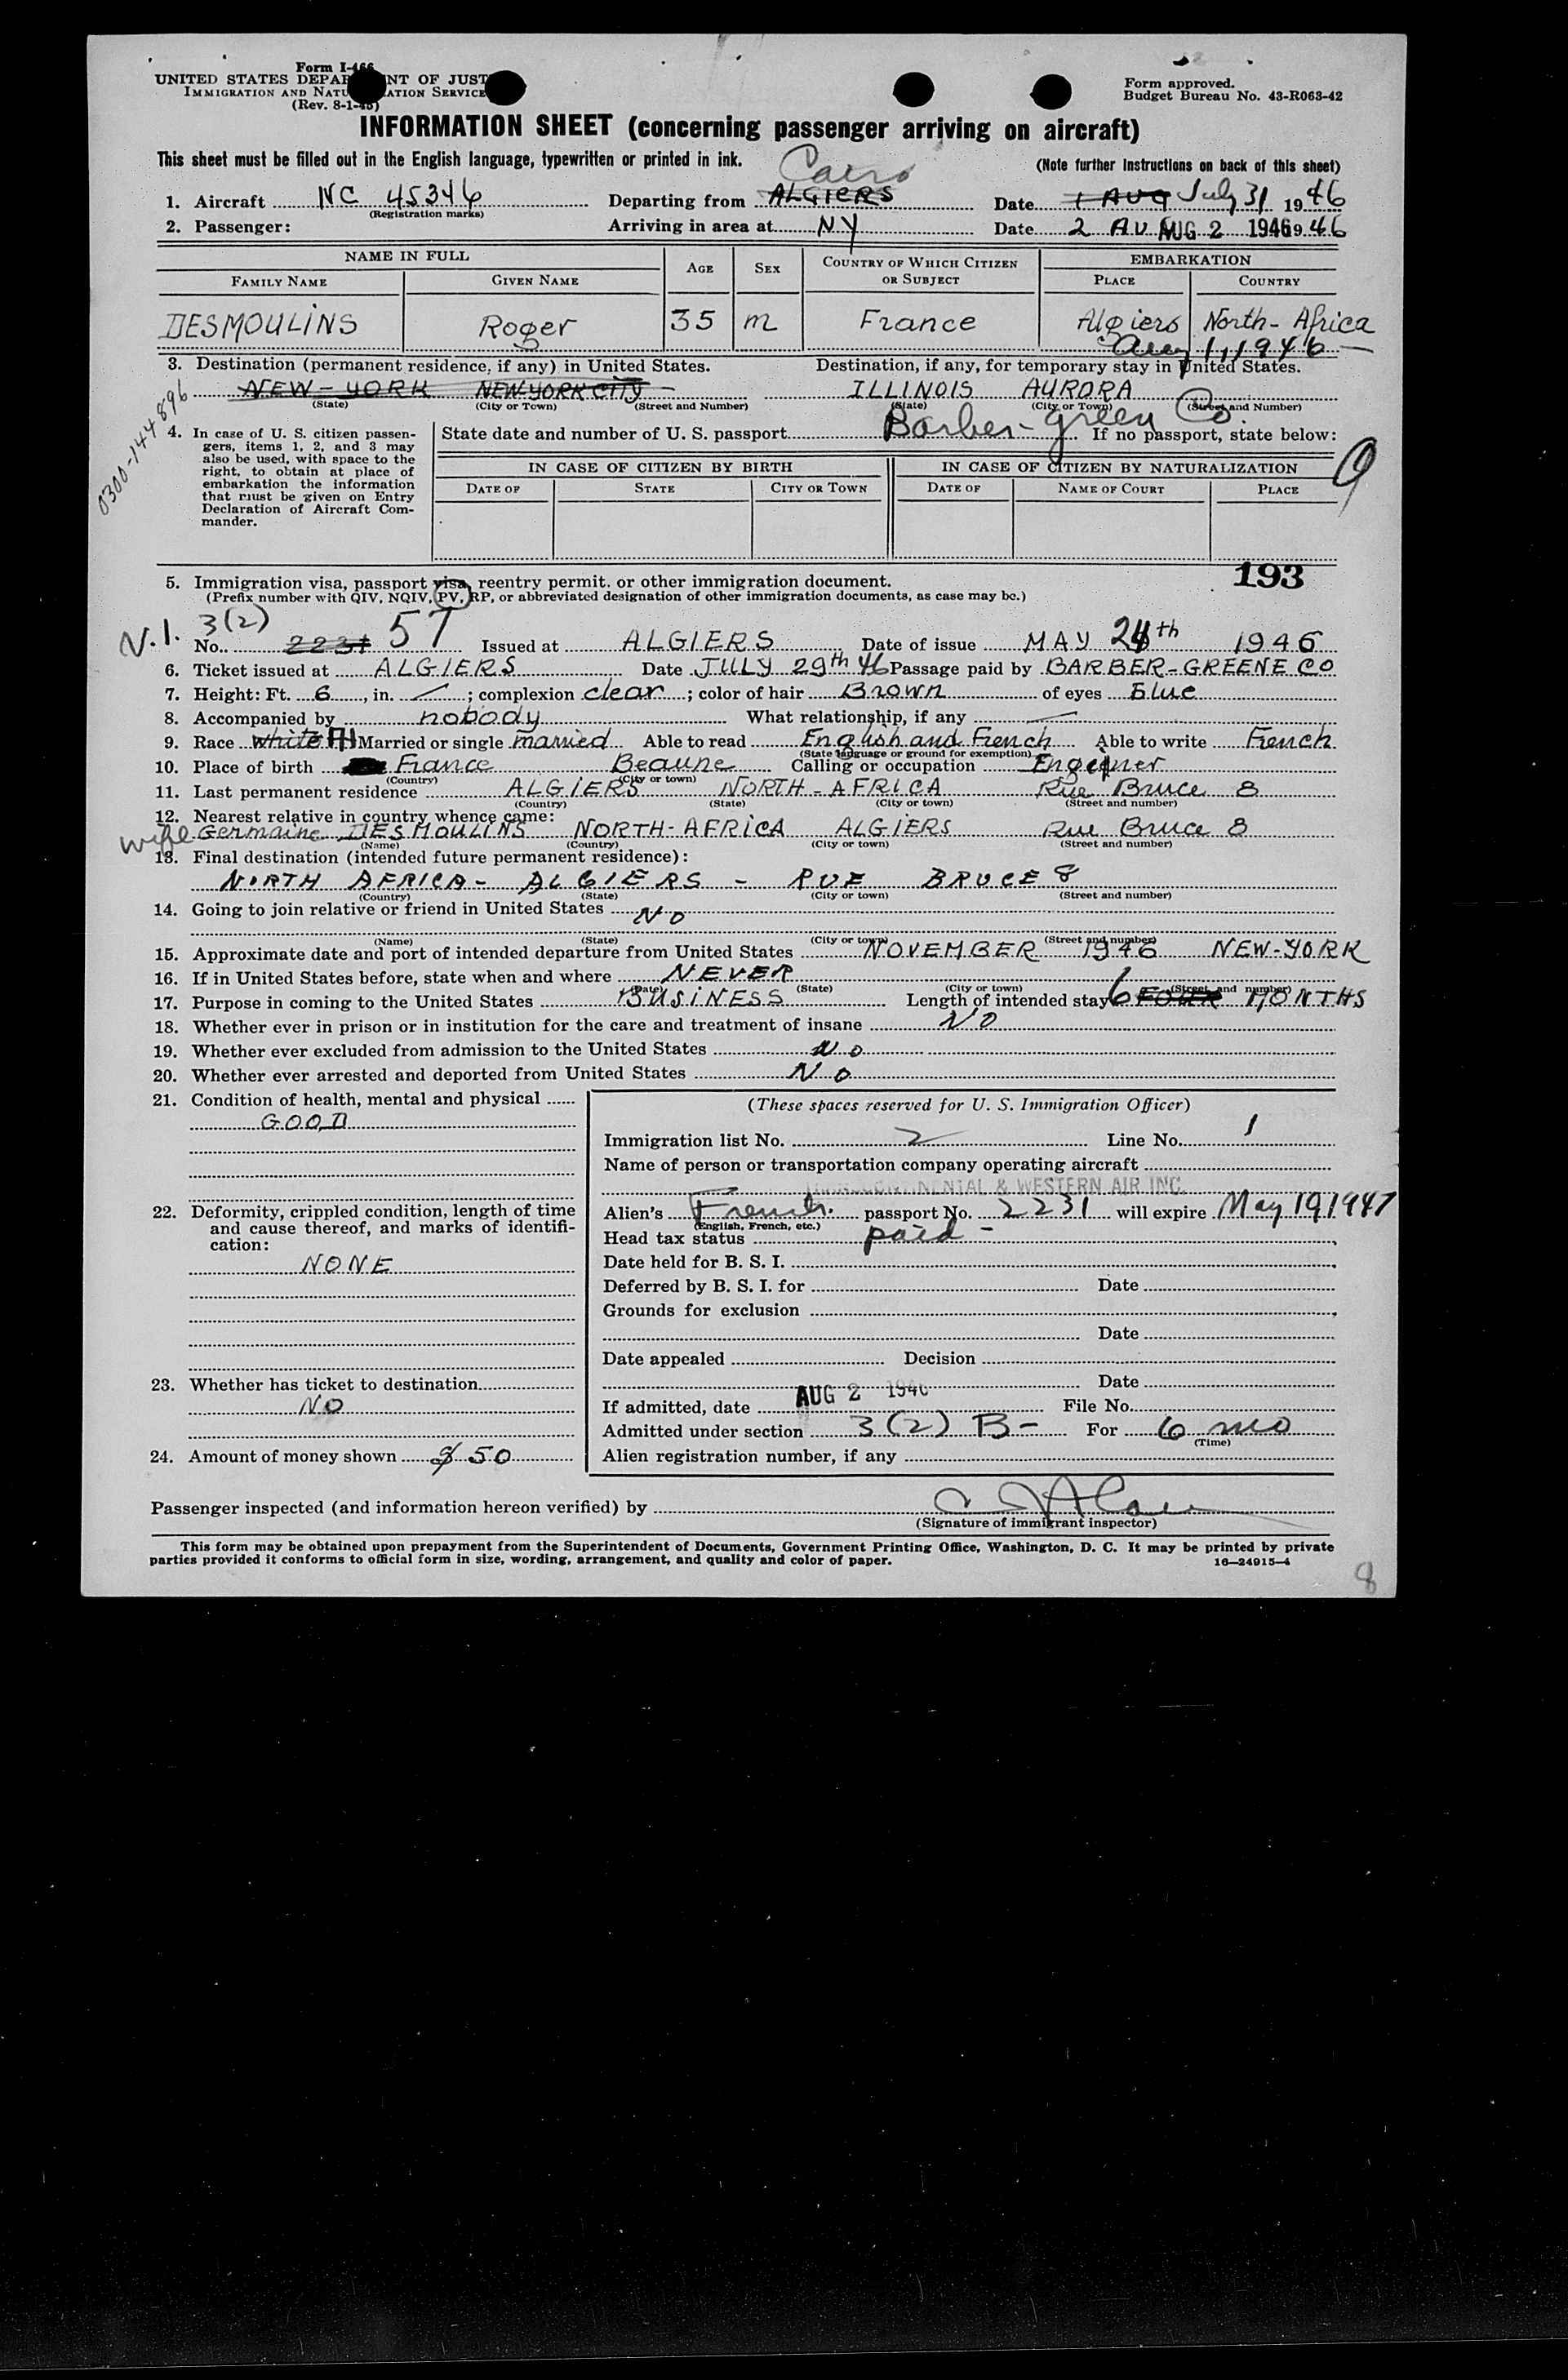 Form I-466
UNITED STATES DEPARTMENT OF JUSTICE
IMMIGRATION AND NATURALIZATION SERVICE
(Rev. 8-1-45)
Form approved.
Budget Bureau No. 43-R063-42
INFORMATION SHEET (concerning passenger arriving on aircraft)
This sheet must be filled out in the English language, typewritten or printed in ink.
(Note further instructions on back of this sheet)
Cairo
1. Aircraft NC 45346 Departing from ALGIERS Date 1 AUG July 31 1946
(Registration marks)
2. Passenger: Arriving in area at N.Y Date 2 AU AUG 2 1946 19 46
NAME IN FULL AGE SEX COUNTRY OF WHICH CITIZEN OR SUBJECT EMBARKATION
FAMILY NAME GIVEN NAME PLACE COUNTRY
DESMOULINS Roger 35 m France Algiers North-Africa
Aug 1, 1946
3. Destination (permanent residence, if any) in United States. Destination, if any, for temporary stay in United States.
NEW-YORK NEW-YORK CITY ILLINOIS AURORA
(State) (City or Town) (Street and Number) (State) (City or Town) (Street and Number)
0300-144896
Barber-green Co.
4. In case of U. S. citizen passengers, items 1, 2, and 3 may also be used, with space to the right, to obtain at place of embarkation the information that must be given on Entry Declaration of Aircraft Commander.
State date and number of U. S. passport If no passport, state below:
IN CASE OF CITIZEN BY BIRTH IN CASE OF CITIZEN BY NATURALIZATION
9
DATE OF STATE CITY OR TOWN DATE OF NAME OF COURT PLACE
193
5. Immigration visa, passport visa, reentry permit. or other immigration document.
(Prefix number with QIV, NQIV, PV, RP, or abbreviated designation of other immigration documents, as case may be.)
V.I. 3(2)
No. 2231 57 Issued at ALGIERS Date of issue MAY 24th 1946
6. Ticket issued at ALGIERS Date JULY 29th 46 Passage paid by BARBER-GREENE CO
7. Height: Ft. 6, in. ; complexion clear; color of hair Brown of eyes Blue
8. Accompanied by nobody What relationship, if any
9. Race white Married or single married Able to read English and French Able to write French
(State language or ground for exemption)
10. Place of birth France Beaune Calling or occupation Engeener
(Country) (City or town)
11. Last permanent residence ALGIERS NORTH-AFRICA Rue Bruce 8
(Country) (State) (City or town) (Street and number)
12. Nearest relative in country whence came:
wife Germaine DESMOULINS NORTH-AFRICA ALGIERS Rue Bruce 8
(Name) (Country) (City or town) (Street and number)
13. Final destination (intended future permanent residence):
NORTH AFRICA - ALGIERS - RUE BRUCE 8
(Country) (State) (City or town) (Street and number)
14. Going to join relative or friend in United States NO
(Name) (State) (City or town) (Street and number)
15. Approximate date and port of intended departure from United States NOVEMBER 1946 NEW-YORK
16. If in United States before, state when and where NEVER
(Date) (State) (City or town) (Street and number)
17. Purpose in coming to the United States BUSINESS Length of intended stay 6 FOUR MONTHS
18. Whether ever in prison or in institution for the care and treatment of insane NO
19. Whether ever excluded from admission to the United States No
20. Whether ever arrested and deported from United States No
21. Condition of health, mental and physical
GOOD
22. Deformity, crippled condition, length of time and cause thereof, and marks of identification:
NONE
23. Whether has ticket to destination
NO
24. Amount of money shown $ 50
(These spaces reserved for U. S. Immigration Officer)
Immigration list No. 2 Line No. 1
Name of person or transportation company operating aircraft
TRANSCONTINENTAL & WESTERN AIR INC.
Alien's French passport No. 2231 will expire May 19, 1947
(English, French, etc.)
Head tax status paid -
Date held for B. S. I.
Deferred by B. S. I. for Date
Grounds for exclusion
Date
Date appealed Decision
Date
If admitted, date AUG 2 1946 File No.
Admitted under section 3(2) B- For 6 mo
(Time)
Alien registration number, if any
Passenger inspected (and information hereon verified) by
(Signature of immigrant inspector)
This form may be obtained upon prepayment from the Superintendent of Documents, Government Printing Office, Washington, D. C. It may be printed by private
parties provided it conforms to official form in size, wording, arrangement, and quality and color of paper. 16—24915-4
8